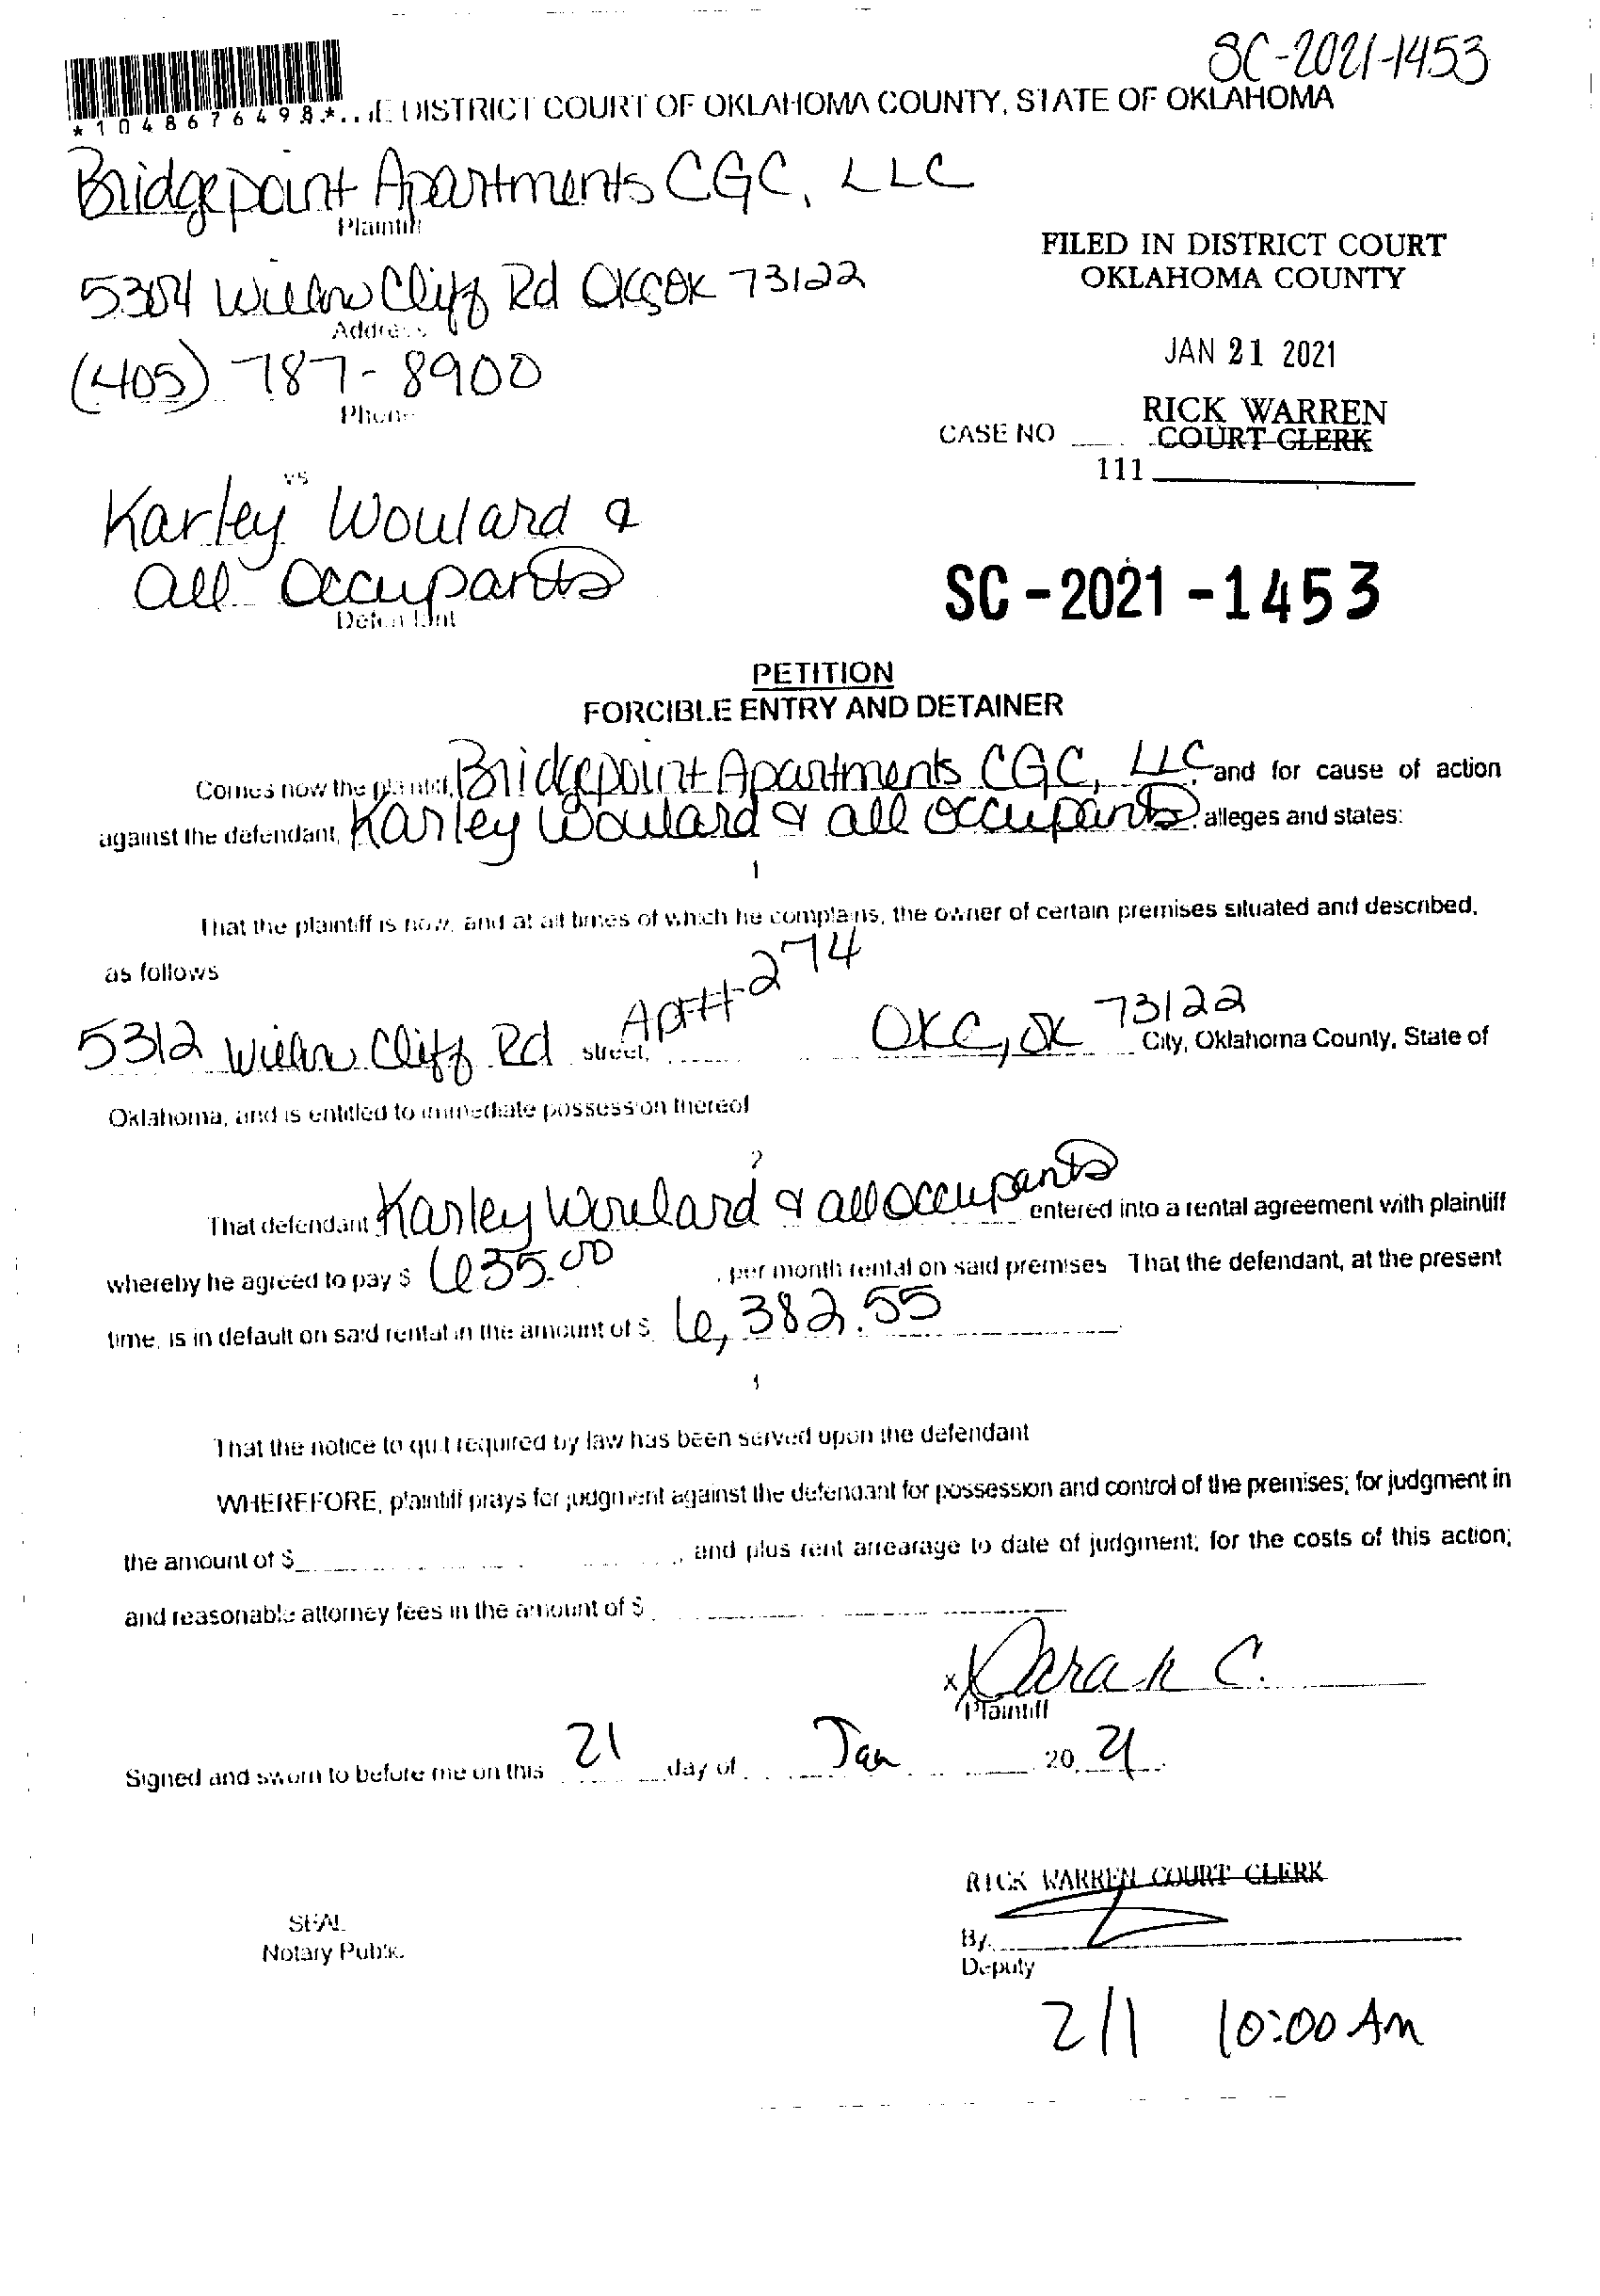 SC-2021-1453
*1048676498* E DISTRICT COURT OF OKLAHOMA COUNTY, STATE OF OKLAHOMA
Bridgepoint Apartments CGC, LLC
Plaintiff
5304 Willow Cliff Rd OKC, OK 73122
Address
FILED IN DISTRICT COURT
OKLAHOMA COUNTY
(405) 787-8900
Phone
JAN 21 2021
RICK WARREN
CASE NO COURT CLERK
111
vs
Karley Woulard &
all Occupants
Defendant
SC-2021-1453
PETITION
FORCIBLE ENTRY AND DETAINER
Comes now the plaintiff, Bridgepoint Apartments CGC, LLC and for cause of action
against the defendant, Karley Woulard & all occupants alleges and states:
1
That the plaintiff is now, and at all times of which he complains, the owner of certain premises situated and described,
as follows
5312 Willow Cliff Rd street, Apt# 274 OKC, OK 73122 City, Oklahoma County, State of
Oklahoma, and is entitled to immediate possession thereof
2
That defendant Karley Woulard & all occupants entered into a rental agreement with plaintiff
whereby he agreed to pay $ 635.00, per month rental on said premises That the defendant, at the present
time, is in default on said rental in the amount of $ 6,382.55
That the notice to quit required by law has been served upon the defendant
WHEREFORE, plaintiff prays for judgment against the defendant for possession and control of the premises; for judgment in
the amount of $ , and plus rent arrearage to date of judgment; for the costs of this action;
and reasonable attorney fees in the amount of $
x Sarah C.
Plaintiff
Signed and sworn to before me on this 21 day of Jan 20 21
RICK WARREN COURT CLERK
SEAL
Notary Public
By
Deputy
2/1 10:00 AM